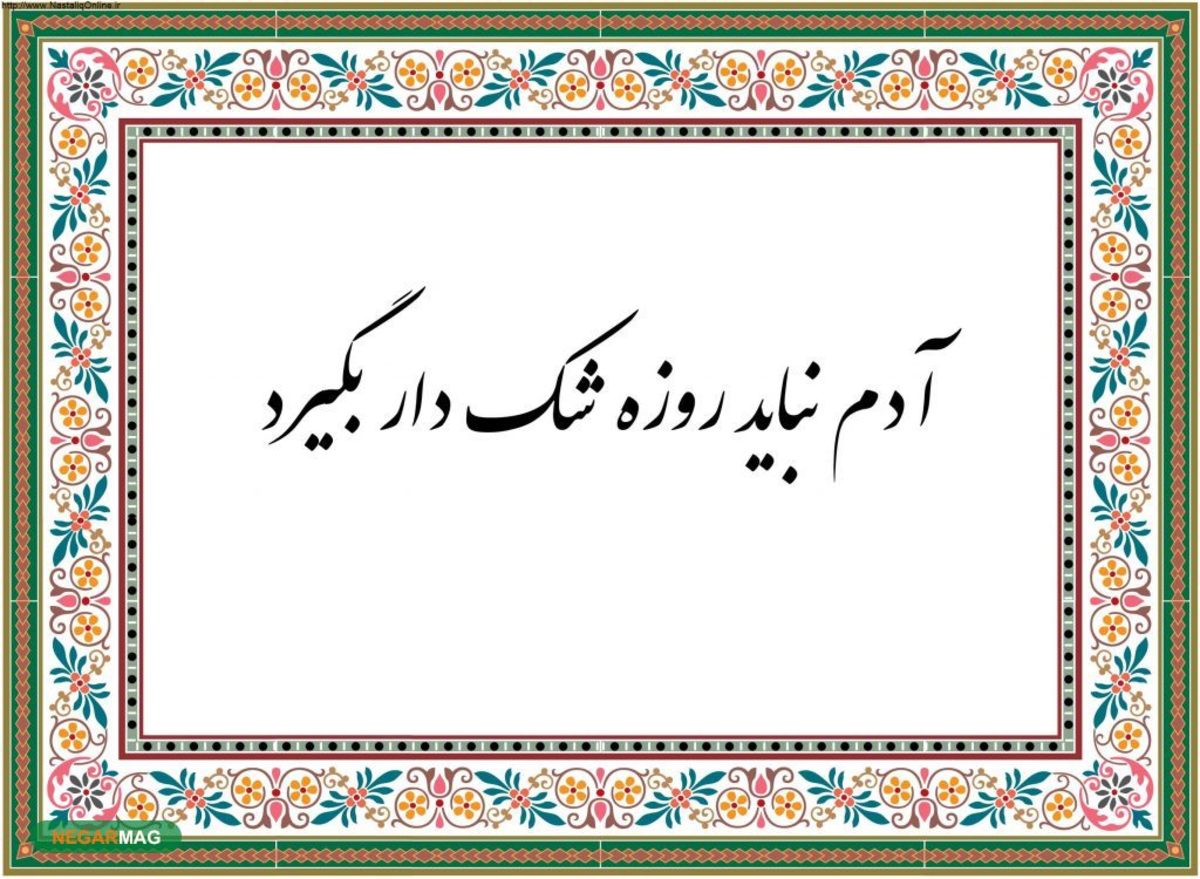 http://www.NastaliqOnline.ir
آدم نباید روزه شک دار بگیرد
NEGARMAG